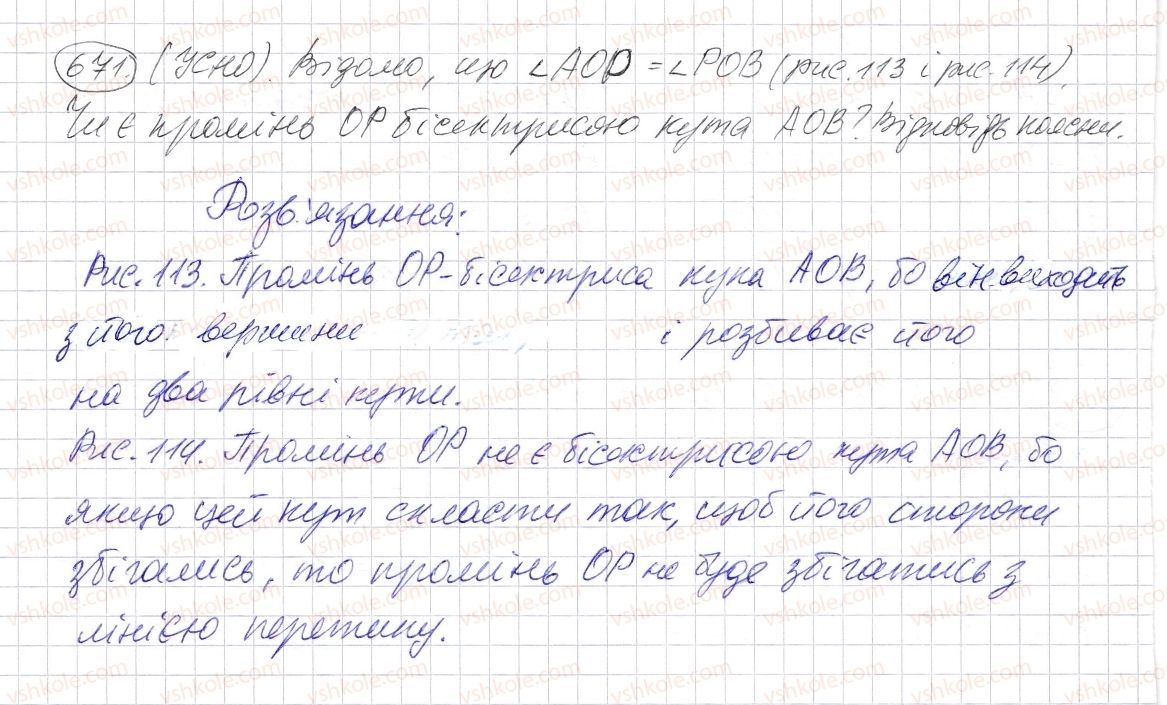 671. (Усно). Відомо, що ∠AOP = ∠POB (рис. 113 і рис. 114).
Чи є промінь OP бісектрисою кута AOB? Відповідь поясни.
Розв'язання:
Рис. 113. Промінь OP - бісектриса кута AOB, бо він виходить
з його вершини і розбиває його
на два рівні кути.
Рис. 114. Промінь OP не є бісектрисою кута AOB, бо
якщо цей кут скласти так, щоб його сторони
збігались, то промінь OP не буде збігатись з
лінією перетину.